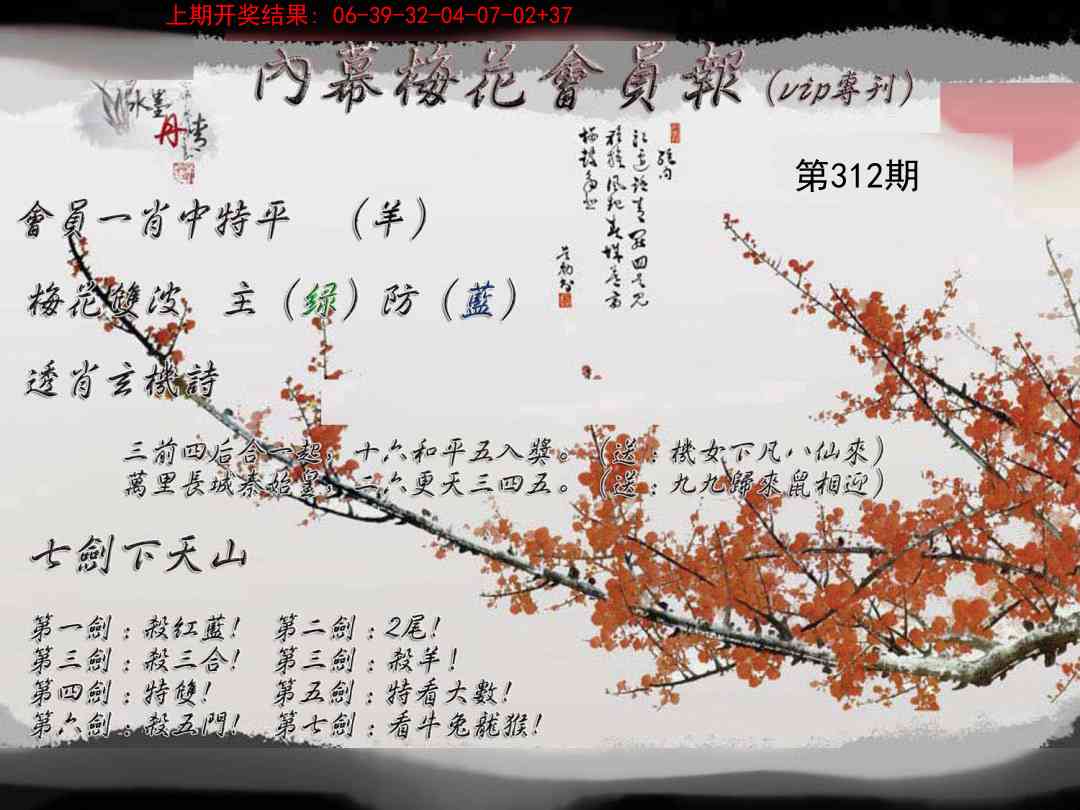 上期开奖结果: 06-39-32-04-07-02+37
內幕梅花會員報(vip專刊)
水墨
丹青
第312期
會員一肖中特平 (羊)
梅花雙波 主(绿)防(藍)
透肖玄機詩
三前四后合一起，十六和平五入獎。(送:機女下凡八仙來)
萬里長城秦始皇，二六更天三四五。(送:九九歸來鼠相迎)
七劍下天山
第一劍:殺紅藍! 第二劍:2尾!
第三劍:殺三合! 第三劍:殺羊!
第四劍:特雙! 第五劍:特看大數!
第六劍:殺五門! 第七劍:看牛兔龍猴!